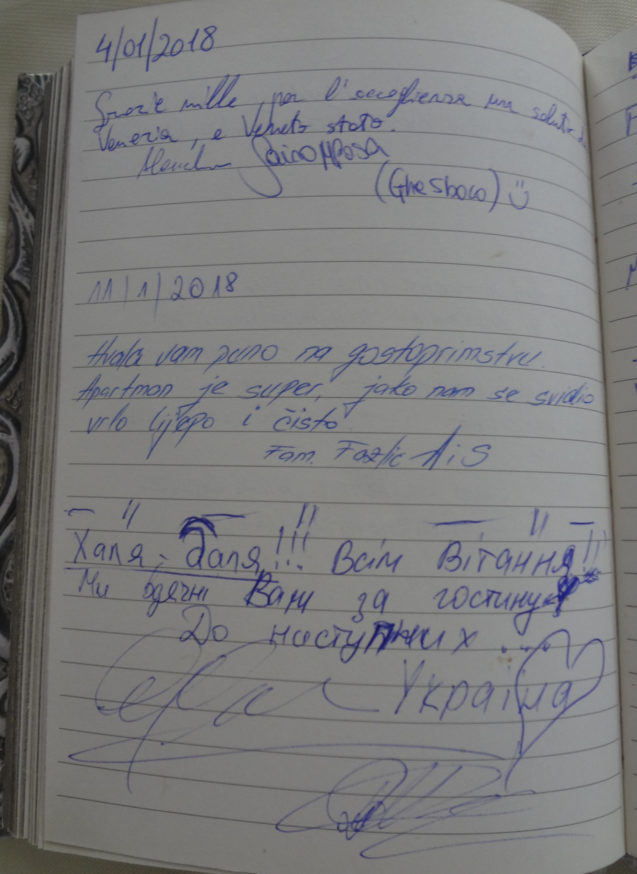 4/01/2018
Grazie mille, per l'accoglienza un saluto da
Venezia, e Veneto stato.
(Ghesboro)
11/1/2018
Hvala vam puno na gostoprimstvu.
Apartmon je super, jako nam se svidio
vrlo lijepo i čisto
Fam. Fazlic A i S
— " — " — " —
Халя, - даля,!!! Всім Вітання!!
Ми вдячні Вам за гостину
До наступних ....
Україна